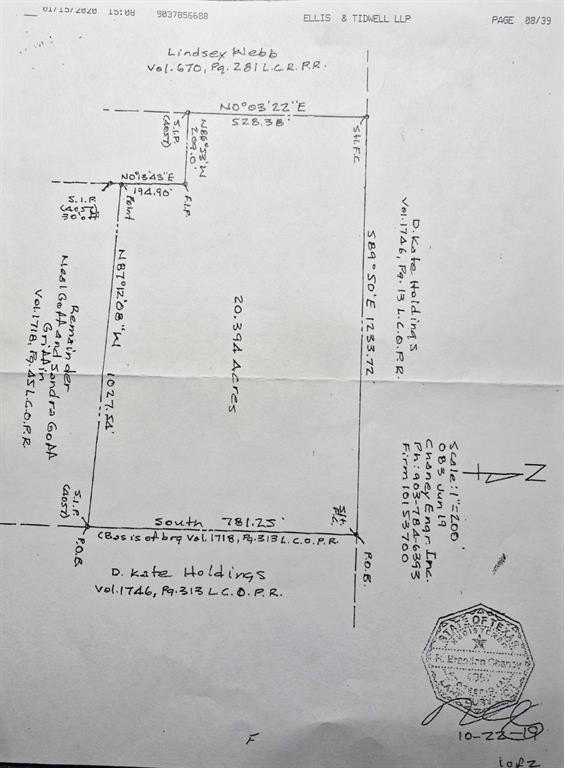 01/15/2020 15:08 9037856688 ELLIS & TIDWELL LLP PAGE 08/39
Lindsey Webb
Vol. 670, Pg. 281 L.C.R.P.R.
N0°03'22"E
528.38'
S.I.P.
(4057)
N86°53'W
209.0'
SH.F.C.
N0°13'43"E
194.90'
F.I.P.
Point
S.I.P.
D. Kate Holdings
Vol. 1746, Pg. 13 L.C.O.P.R.
S89°50'E 1233.72'
20.394 Acres
N87°12'08"W 1027.54'
Remainder
Neal Goff and Sandra Goff
Griffin
Vol. 1718, Pg. 45 L.C.O.P.R.
N
Scale: 1"=200'
083 Jun 19
Chaney Engr. Inc.
Ph: 903-784-6393
Firm 10153700
S.I.P.
(4057)
P.O.B.
South 781.25'
(Basis of brg Vol. 1718, Pg. 313 L.C.O.P.R.
P.O.B.
D. Kate Holdings
Vol. 1746, Pg. 313 L.C.O.P.R.
STATE OF TEXAS
REGISTERED
R. Brandon Chaney
4057
10-22-19
F
1 of 2